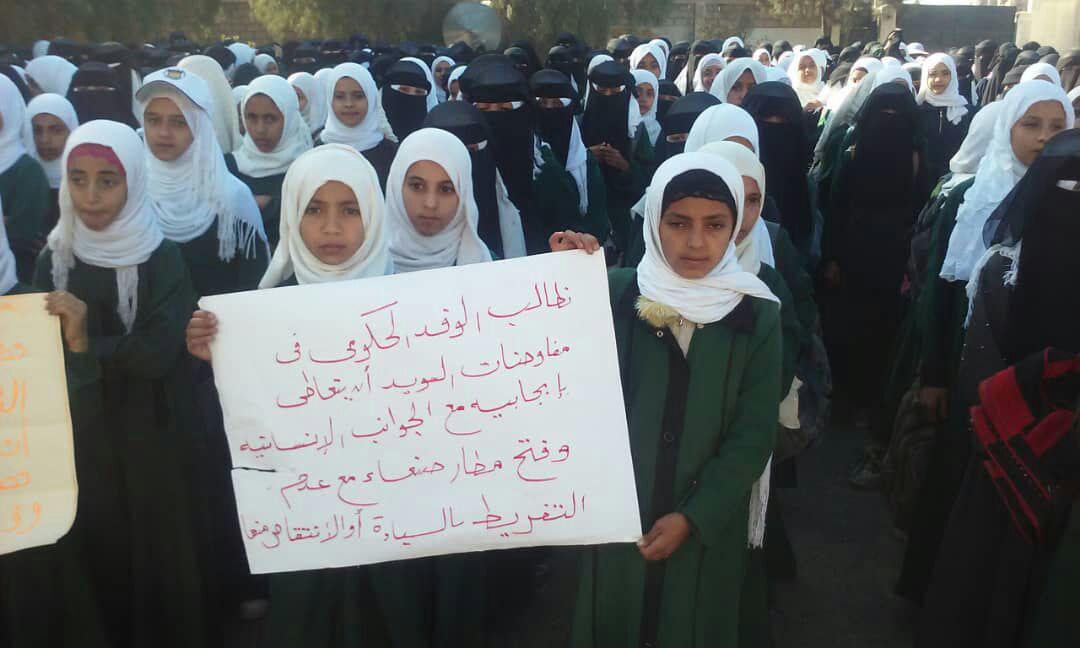 نطالب الوفد الحكومي في
مفاوضات السويد أن يتعاطى
بإيجابيه مع الجوانب الإنسانيه
وفتح مطار صنعاء مع عدم
التفريط بالسيادة أو الانتقاص منها